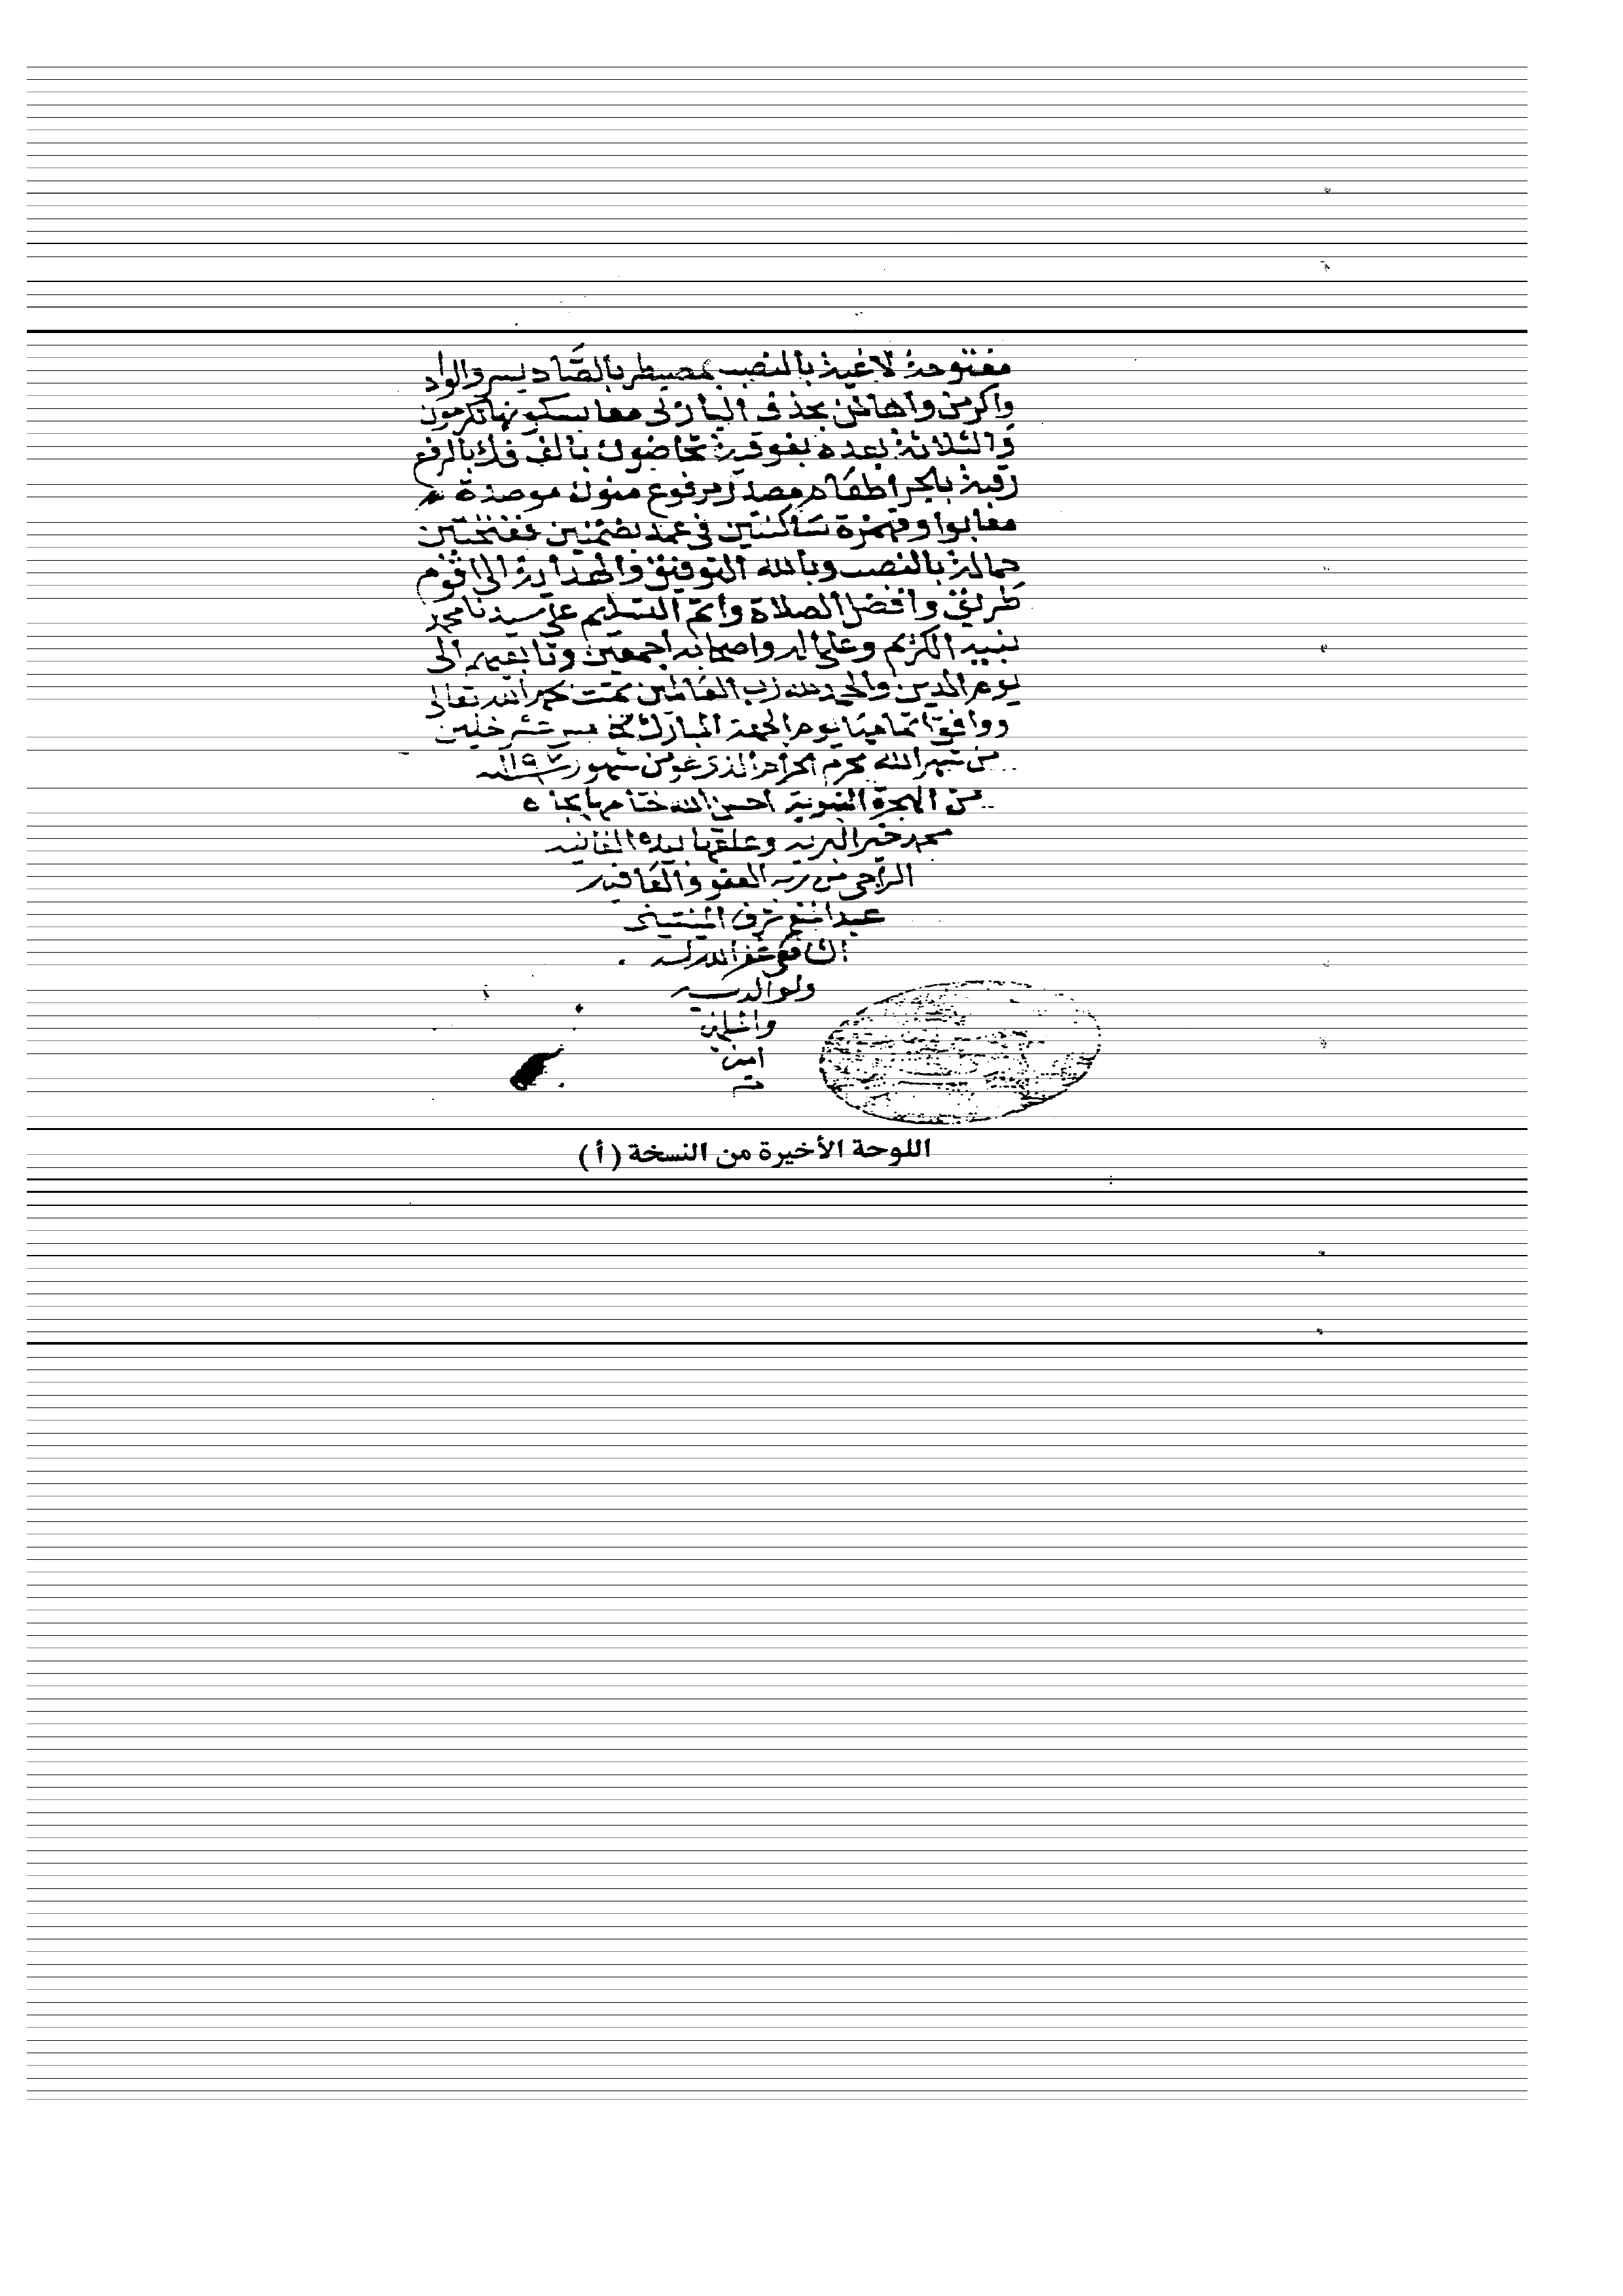 مفتوحة لاغية بالنصب بمصيطر بالصاد يسر والواد
واكرمن وأهانن بحذف اليا زلى معا بسكونها تكرمون
والثلاثة بعده بفوقية تحاضون بألف فك بالرفع
رقبة بالجر اطعام مصدر مرفوع منون موصدة
معا بواو همزة ساكنتين في عمد بضمتين ففتحتين
حمالة بالنصب وبالله التوفيق والهداية الى اقوم
طريق وافضل الصلاة واتم التسليم على سيدنا محمد
نبيه الكريم وعلى اله واصحابه اجمعين وتابعيهم الى
يوم الدين والحمد لله رب العالمين تمت بحمد الله تعالى
ووافق تمامها يوم الجمعة المبارك خلين
من شهر الله محرم الحرام الذى هو من شهور سنة ١١٩٧
من الهجرة النبوية احسن الله ختامها بجاه
محمد خير البرية وعلقها بيده الفانية
الراجي من ربه العفو والعافية
عبد المنعم شرف
الشافعي غفر الله له
ولوالديه
امين
اللوحة الأخيرة من النسخة (أ)